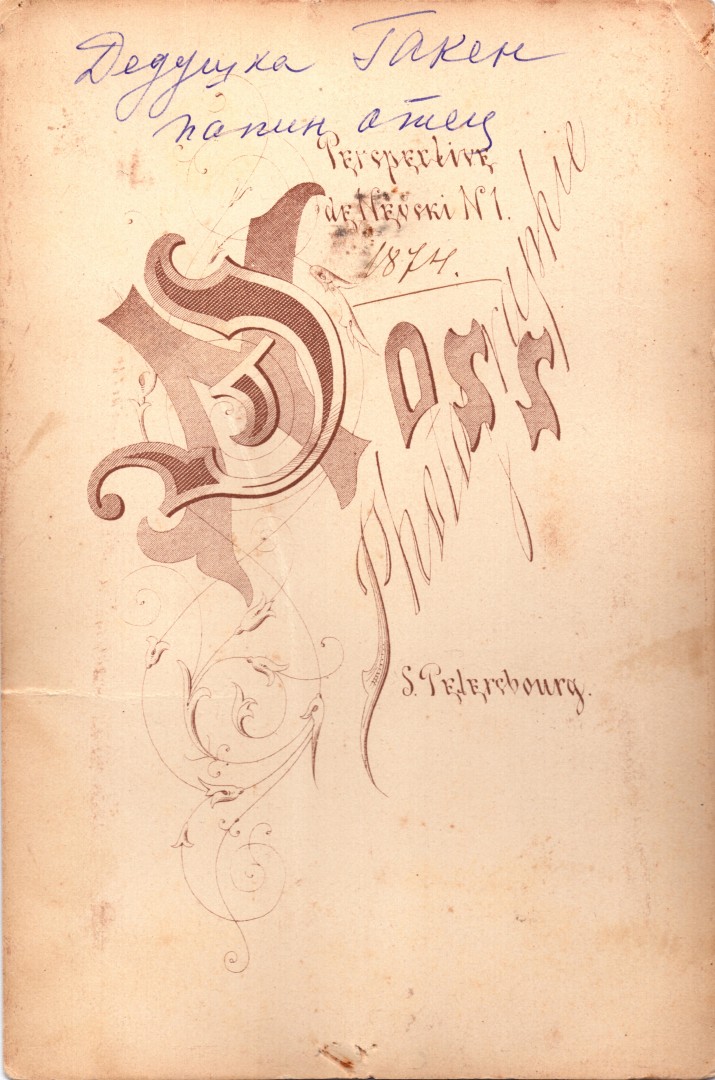 Дедушка Гакен
папин отец
Perspective
de Nevski N 1.
1874.
Doss
Photographie
S. Petersbourg.